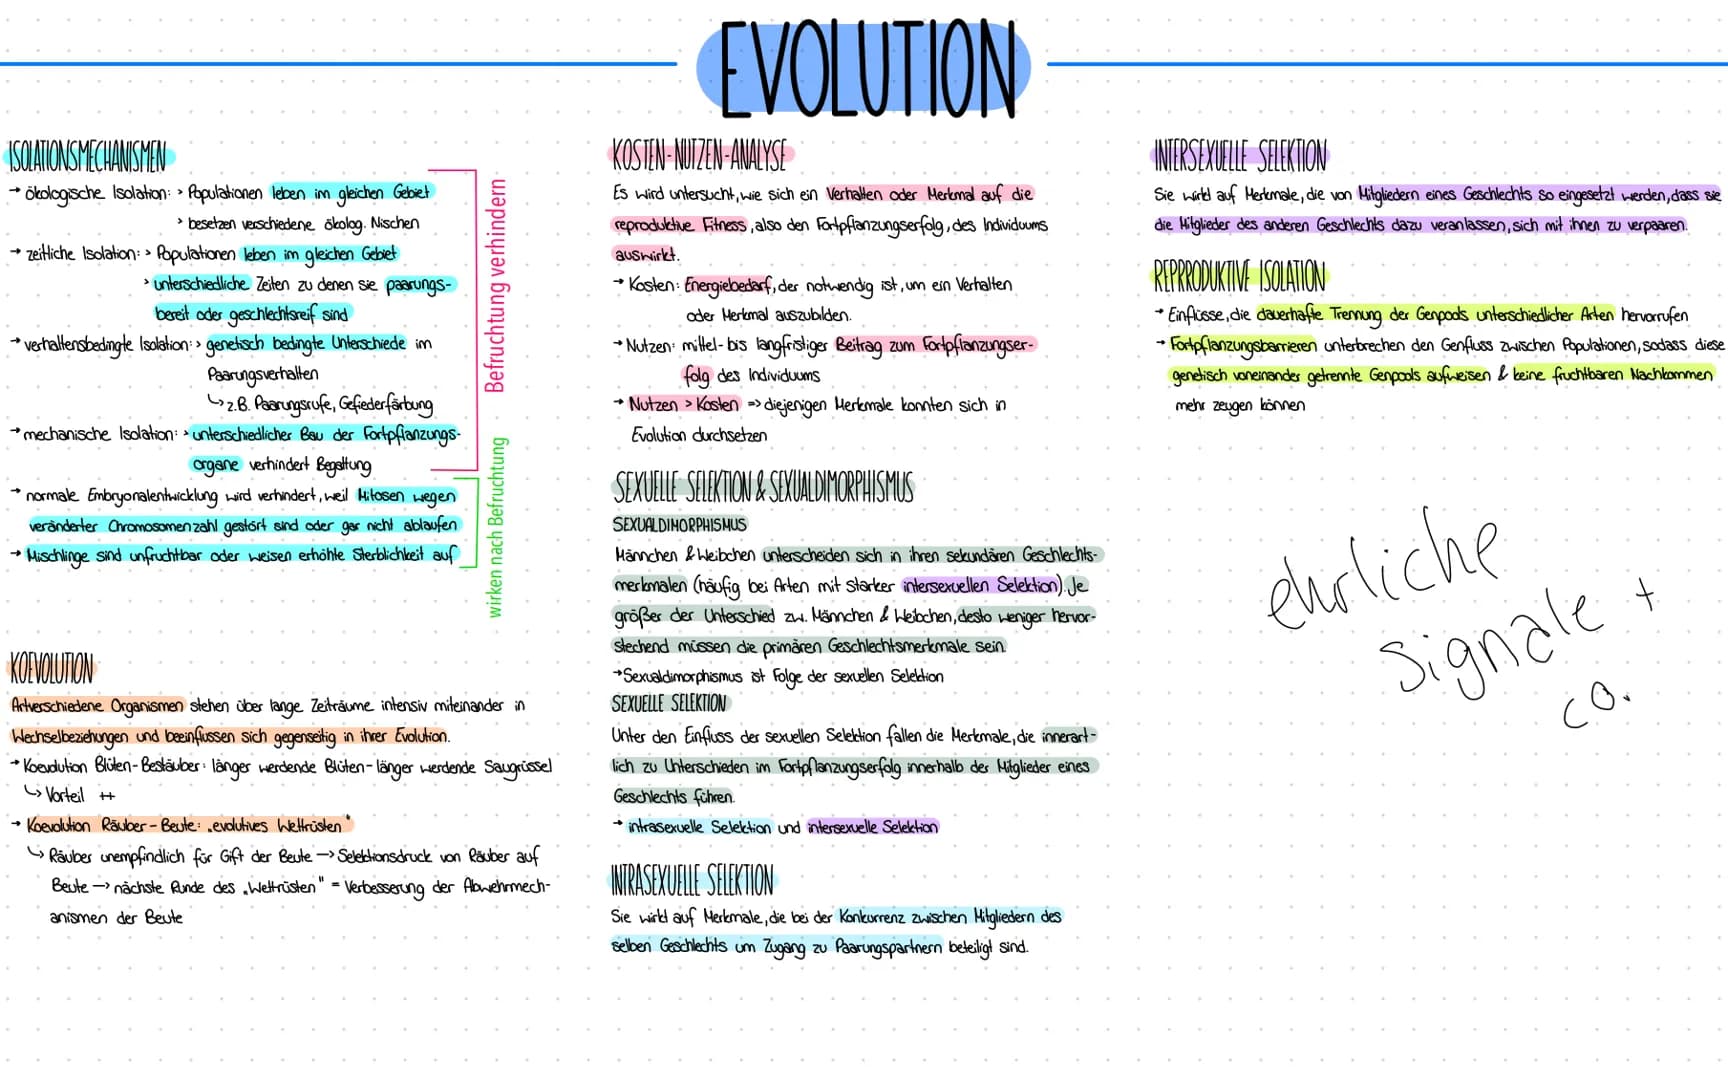 EVOLUTION
ISOLATIONSMECHANISMEN
→ ökologische Isolation: > Populationen leben im gleichen Gebiet
> besetzen verschiedene ökolog. Nischen
→ zeitliche Isolation: > Populationen leben im gleichen Gebiet
> unterschiedliche Zeiten zu denen sie paarungs-
bereit oder geschlechtsreif sind
→ verhaltensbedingte Isolation: > genetisch bedingte Unterschiede im
Paarungsverhalten
↳ z.B. Paarungsrufe, Gefiederfärbung
→ mechanische Isolation: > unterschiedlicher Bau der Fortpflanzungs-
organe verhindert Begattung
→ normale Embryonalentwicklung wird verhindert, weil Mitosen wegen
veränderter Chromosomenzahl gestört sind oder gar nicht ablaufen
→ Mischlinge sind unfruchtbar oder weisen erhöhte Sterblichkeit auf
Befruchtung verhindern
wirken nach Befruchtung
KOEVOLUTION
Artverschiedene Organismen stehen über lange Zeiträume intensiv miteinander in
Wechselbeziehungen und beeinflussen sich gegenseitig in ihrer Evolution.
→ Koevolution Blüten-Bestäuber: länger werdende Blüten - länger werdende Saugrüssel
↳ Vorteil ++
→ Koevolution Räuber-Beute: „evolutives Wettrüsten"
↳ Räuber unempfindlich für Gift der Beute → Selektionsdruck von Räuber auf
Beute → nächste Runde des „Wettrüsten" = Verbesserung der Abwehrmech-
anismen der Beute
KOSTEN-NUTZEN-ANALYSE
Es wird untersucht, wie sich ein Verhalten oder Merkmal auf die
reproduktive Fitness, also den Fortpflanzungserfolg, des Individuums
auswirkt.
→ Kosten: Energiebedarf, der notwendig ist, um ein Verhalten
oder Merkmal auszubilden.
→ Nutzen: mittel- bis langfristiger Beitrag zum Fortpflanzungser-
folg des Individuums
→ Nutzen > Kosten => diejenigen Merkmale konnten sich in
Evolution durchsetzen
SEXUELLE SELEKTION & SEXUALDIMORPHISMUS
SEXUALDIMORPHISMUS
Männchen & Weibchen unterscheiden sich in ihren sekundären Geschlechts-
merkmalen (häufig bei Arten mit starker intersexuellen Selektion). Je
größer der Unterschied zw. Männchen & Weibchen, desto weniger hervor-
stechend müssen die primären Geschlechtsmerkmale sein.
→ Sexualdimorphismus ist Folge der sexuellen Selektion
SEXUELLE SELEKTION
Unter den Einfluss der sexuellen Selektion fallen die Merkmale, die innerart-
lich zu Unterschieden im Fortpflanzungserfolg innerhalb der Mitglieder eines
Geschlechts führen.
→ intrasexuelle Selektion und intersexuelle Selektion
INTRASEXUELLE SELEKTION
Sie wirkt auf Merkmale, die bei der Konkurrenz zwischen Mitgliedern des
selben Geschlechts um Zugang zu Paarungspartnern beteiligt sind.
INTERSEXUELLE SELEKTION
Sie wirkt auf Merkmale, die von Mitgliedern eines Geschlechts so eingesetzt werden, dass sie
die Mitglieder des anderen Geschlechts dazu veranlassen, sich mit ihnen zu verpaaren.
REPRRODUKTIVE ISOLATION
→ Einflüsse, die dauerhafte Trennung der Genpools unterschiedlicher Arten hervorrufen
→ Fortpflanzungsbarrieren unterbrechen den Genfluss zwischen Populationen, sodass diese
genetisch voneinander getrennte Genpools aufweisen & keine fruchtbaren Nachkommen
mehr zeugen können
ehrliche
Signale +
co.